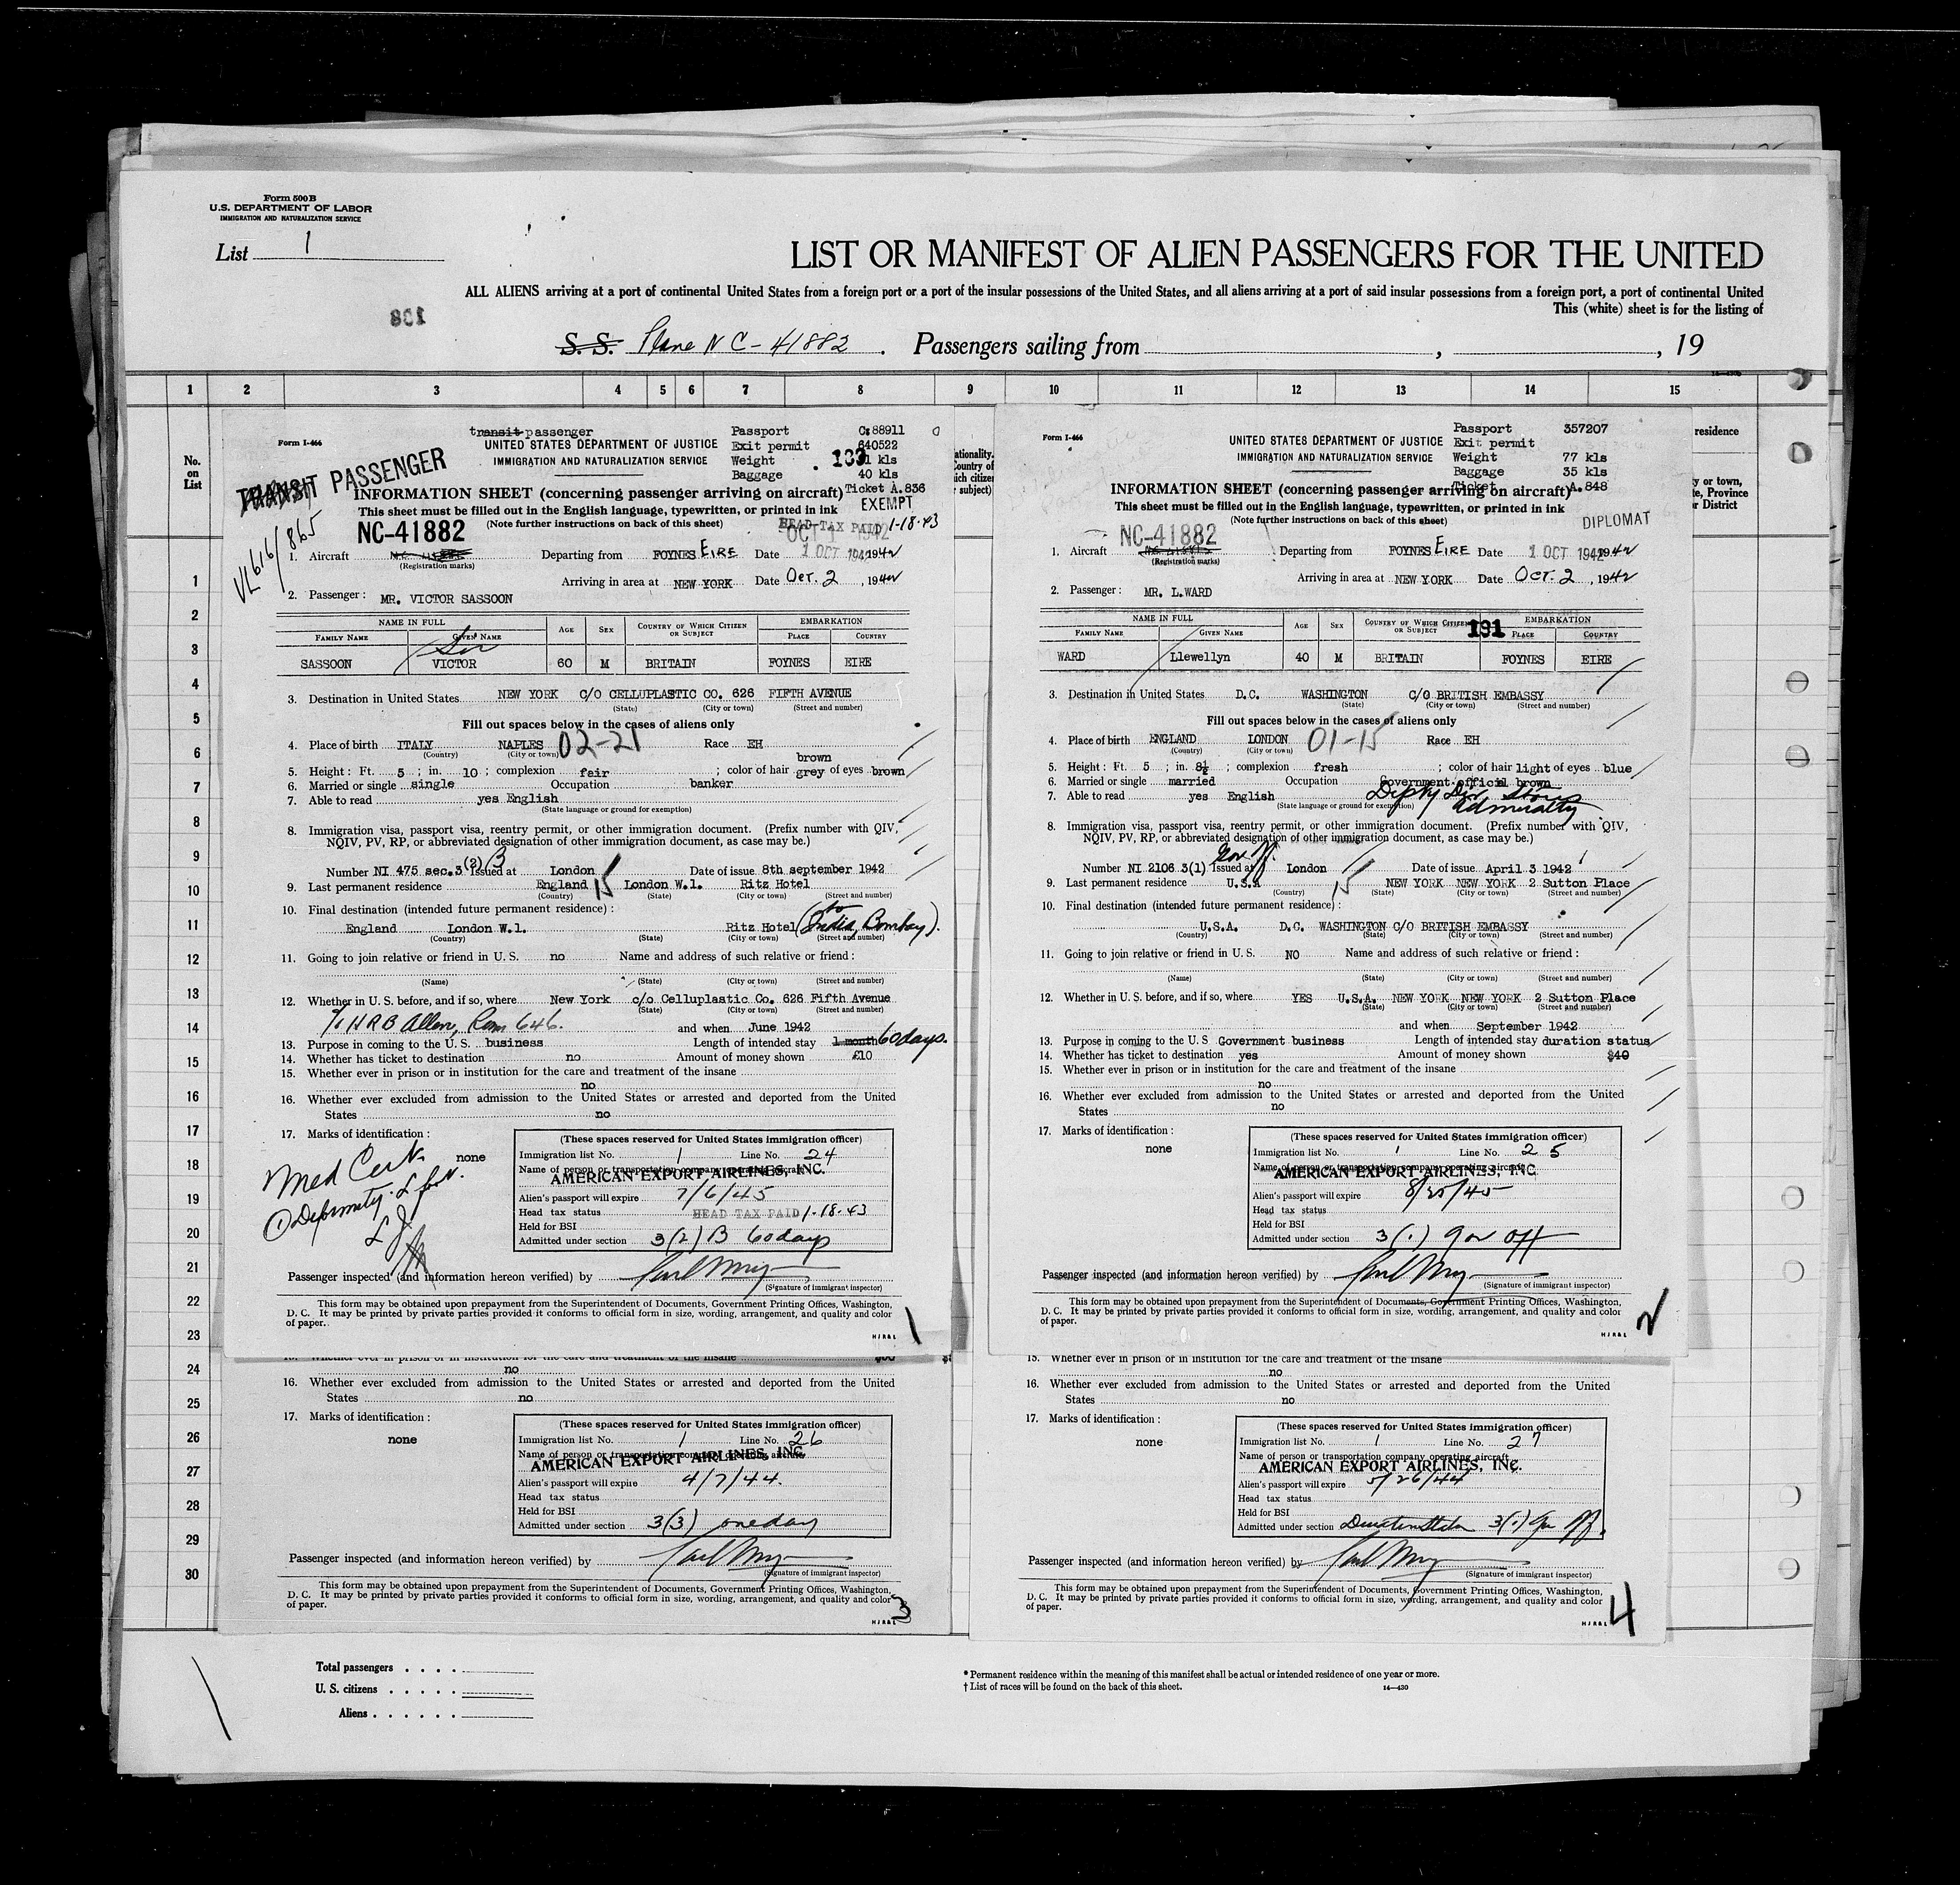 Form 500B
U.S. DEPARTMENT OF LABOR
IMMIGRATION AND NATURALIZATION SERVICE
List 1
LIST OR MANIFEST OF ALIEN PASSENGERS FOR THE UNITED
ALL ALIENS arriving at a port of continental United States from a foreign port or a port of the insular possessions of the United States, and all aliens arriving at a port of said insular possessions from a foreign port, a port of continental United
This (white) sheet is for the listing of
801
S. S. Plane NC-41882 . Passengers sailing from , , 19
1 2 3 4 5 6 7 8 9 10 11 12 13 14 15
No.
on
List
1
2
3
4
5
6
7
8
9
10
11
12
13
14
15
16
17
18
19
20
21
22
23
24
25
26
27
28
29
30
Form I-466
transit passenger
UNITED STATES DEPARTMENT OF JUSTICE
IMMIGRATION AND NATURALIZATION SERVICE
Passport C:88911
Exit permit 640522
Weight 1 kls
Baggage 40 kls
Ticket A.836
TRANSIT PASSENGER
INFORMATION SHEET (concerning passenger arriving on aircraft)
EXEMPT
This sheet must be filled out in the English language, typewritten, or printed in ink
(Note further instructions on back of this sheet)
HEAD TAX PAID 1-18-43
NC-41882
VL616/865
1. Aircraft (Registration marks) Departing from FOYNES EIRE Date 1 OCT 1942 1942
Arriving in area at NEW YORK Date Oct. 2, 1942
2. Passenger: MR. VICTOR SASSOON
NAME IN FULL AGE SEX COUNTRY OF WHICH CITIZEN OR SUBJECT EMBARKATION
FAMILY NAME GIVEN NAME PLACE COUNTRY
Sir
SASSOON VICTOR 60 M BRITAIN FOYNES EIRE
3. Destination in United States NEW YORK C/O CELLUPLASTIC CO. 626 FIFTH AVENUE
(State) (City or town) (Street and number)
Fill out spaces below in the cases of aliens only
4. Place of birth ITALY NAPLES 02-21 Race EH
(Country) (City or town)
brown
5. Height: Ft. 5; in. 10; complexion fair; color of hair grey of eyes brown
6. Married or single single Occupation banker
7. Able to read yes English
(State language or ground for exemption)
8. Immigration visa, passport visa, reentry permit, or other immigration document. (Prefix number with QIV,
NQIV, PV, RP, or abbreviated designation of other immigration document, as case may be.)
Number NI 475 sec.3 (2) B Issued at London Date of issue 8th september 1942
9. Last permanent residence England 15 London W.1. Ritz Hotel
(Country) (State) (Street and number)
10. Final destination (intended future permanent residence):
England London W.1. Ritz Hotel (to India, Bombay).
(Country) (State) (City or town) (Street and number)
11. Going to join relative or friend in U. S. no Name and address of such relative or friend:
(Name) (State) (City or town) (Street and number)
12. Whether in U. S. before, and if so, where New York c/o Celluplastic Co. 626 Fifth Avenue
(State) (City or town) (Street and number)
HRB Allen, Room 646. and when June 1942
13. Purpose in coming to the U. S. business Length of intended stay 1 month 60 days.
14. Whether has ticket to destination no Amount of money shown £10
15. Whether ever in prison or in institution for the care and treatment of the insane
no
16. Whether ever excluded from admission to the United States or arrested and deported from the United
States no
17. Marks of identification:
none
Med Cert.
① Deformity L foot.
(These spaces reserved for United States immigration officer)
Immigration list No. 1 Line No. 24
Name of person or transportation company operating aircraft
AMERICAN EXPORT AIRLINES, INC.
Alien's passport will expire 7/6/45
Head tax status HEAD TAX PAID 1-18-43
Held for BSI
Admitted under section 3(2) B 60 days
Passenger inspected (and information hereon verified) by
(Signature of immigrant inspector)
This form may be obtained upon prepayment from the Superintendent of Documents, Government Printing Offices, Washington,
D. C. It may be printed by private parties provided it conforms to official form in size, wording, arrangement, and quality and color
of paper.
HJR&L 1
ationality.
Country of
ich citizen
subject)
Form I-466
UNITED STATES DEPARTMENT OF JUSTICE
IMMIGRATION AND NATURALIZATION SERVICE
Passport 357207
Exit permit
Weight 77 kls
Baggage 35 kls
Ticket A. 848
INFORMATION SHEET (concerning passenger arriving on aircraft)
This sheet must be filled out in the English language, typewritten, or printed in ink
(Note further instructions on back of this sheet)
DIPLOMAT
NC-41882
1. Aircraft (Registration marks) Departing from FOYNES EIRE Date 1 OCT 1942 1942
Arriving in area at NEW YORK Date Oct. 2, 1942
2. Passenger: MR. L.WARD
NAME IN FULL AGE SEX COUNTRY OF WHICH CITIZEN OR SUBJECT EMBARKATION
191
FAMILY NAME GIVEN NAME PLACE COUNTRY
WARD Llewellyn 40 M BRITAIN FOYNES EIRE
3. Destination in United States D.C. WASHINGTON C/O BRITISH EMBASSY
(State) (City or town) (Street and number)
Fill out spaces below in the cases of aliens only
4. Place of birth ENGLAND LONDON 01-15 Race EH
(Country) (City or town)
5. Height: Ft. 5; in. 8½; complexion fresh; color of hair light of eyes blue
brown
6. Married or single married Occupation Government official
7. Able to read yes English Depty Dir Stores Admiralty
(State language or ground for exemption)
8. Immigration visa, passport visa, reentry permit, or other immigration document. (Prefix number with QIV,
NQIV, PV, RP, or abbreviated designation of other immigration document, as case may be.)
Gov. Off.
Number NI 2106 3(1) Issued at London Date of issue April 3 1942
9. Last permanent residence U.S.A 15 NEW YORK NEW YORK 2 Sutton Place
(Country) (State) (City or town) (Street and number)
10. Final destination (intended future permanent residence):
U.S.A. D.C. WASHINGTON C/O BRITISH EMBASSY
(Country) (State) (City or town) (Street and number)
11. Going to join relative or friend in U. S. NO Name and address of such relative or friend:
(Name) (State) (City or town) (Street and number)
12. Whether in U. S. before, and if so, where YES U.S.A. NEW YORK NEW YORK 2 Sutton Place
(State) (City or town) (Street and number)
and when September 1942
13. Purpose in coming to the U. S Government business Length of intended stay duration status
14. Whether has ticket to destination yes Amount of money shown $40
15. Whether ever in prison or in institution for the care and treatment of the insane
no
16. Whether ever excluded from admission to the United States or arrested and deported from the United
States no
17. Marks of identification:
none
(These spaces reserved for United States immigration officer)
Immigration list No. 1 Line No. 25
Name of person or transportation company operating aircraft
AMERICAN EXPORT AIRLINES, INC
Alien's passport will expire 8/25/45
Head tax status
Held for BSI
Admitted under section 3(1) gov off
Passenger inspected (and information hereon verified) by
(Signature of immigrant inspector)
This form may be obtained upon prepayment from the Superintendent of Documents, Government Printing Offices, Washington,
D. C. It may be printed by private parties provided it conforms to official form in size, wording, arrangement, and quality and color
of paper.
HJR&L 2
residence
y or town,
te, Province
r District
15. Whether ever in prison or in institution for the care and treatment of the insane
no
16. Whether ever excluded from admission to the United States or arrested and deported from the United
States no
17. Marks of identification:
none
(These spaces reserved for United States immigration officer)
Immigration list No. 1 Line No. 26
Name of person or transportation company operating aircraft
AMERICAN EXPORT AIRLINES, INC
Alien's passport will expire 4/7/44.
Head tax status
Held for BSI
Admitted under section 3(3) one day
Passenger inspected (and information hereon verified) by
(Signature of immigrant inspector)
This form may be obtained upon prepayment from the Superintendent of Documents, Government Printing Offices, Washington,
D. C. It may be printed by private parties provided it conforms to official form in size, wording, arrangement, and quality and color
of paper.
HJR&L 3
15. Whether ever in prison or in institution for the care and treatment of the insane
no
16. Whether ever excluded from admission to the United States or arrested and deported from the United
States no
17. Marks of identification:
none
(These spaces reserved for United States immigration officer)
Immigration list No. 1 Line No. 27
Name of person or transportation company operating aircraft
AMERICAN EXPORT AIRLINES, INC.
Alien's passport will expire 5/26/44
Head tax status
Held for BSI
Admitted under section 3(1) Gov Off.
Passenger inspected (and information hereon verified) by
(Signature of immigrant inspector)
This form may be obtained upon prepayment from the Superintendent of Documents, Government Printing Offices, Washington,
D. C. It may be printed by private parties provided it conforms to official form in size, wording, arrangement, and quality and color
of paper.
HJR&L 4
Total passengers . . . .
U. S. citizens . . . . .
Aliens . . . . . .
* Permanent residence within the meaning of this manifest shall be actual or intended residence of one year or more.
† List of races will be found on the back of this sheet.
14—430